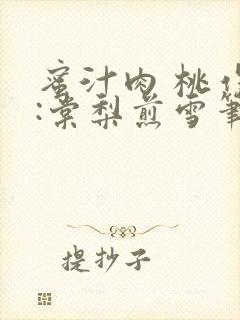 蜜汁肉桃作
:棠梨煎雪笔
提抄子